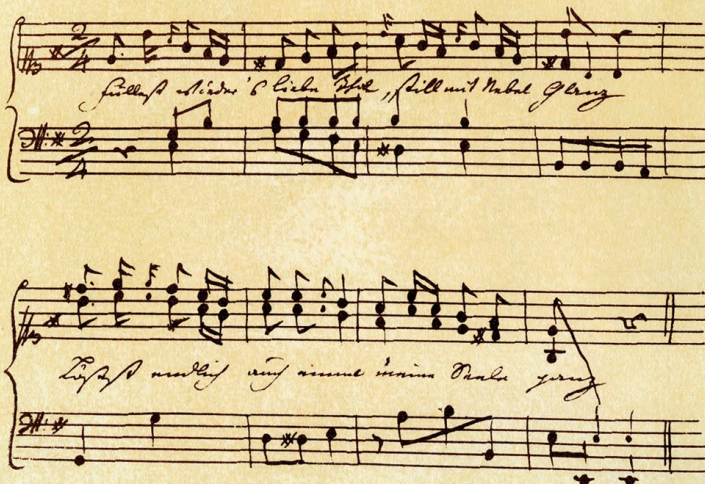 2/4
füllest wieder's liebe Thal, still mit Nebel Glanz
2/4
Lösest endlich auch einmal meine Seele ganz